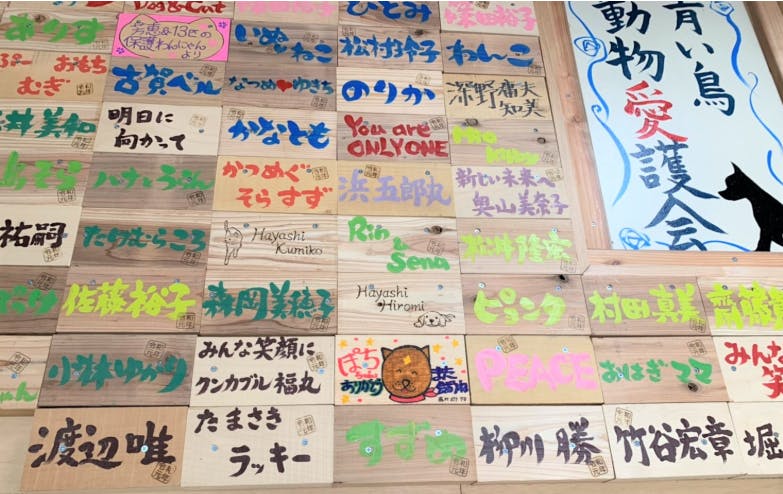 ありす
保護わんにゃん
より
いぬ
ねこ
ひとみ
松村玲子
篠田裕子
わんこ
おもち
むぎ
古賀ベル
なつめ♥ゆきち
のりか
深野
知美
井美和
明日に
向かって
かなとも
You are
ONLY ONE
かつめぐ
そらすず
浜五郎丸
新しい未来へ
奥山美奈子
祐嗣
たけむらころ
Hayashi
Kumiko
Rin
&
Sena
松井隆宏
佐藤裕子
森岡美穂子
Hayashi
Hiromi
ピュンタ
村田真美
小林ゆかり
みんな笑顔に
クンカブル福丸
ぽち
ありがとう
PEACE
おはぎママ
みんな
笑
渡辺唯
たまさき
ラッキー
柳川勝
竹谷宏章
堀
青い鳥
動物愛護会